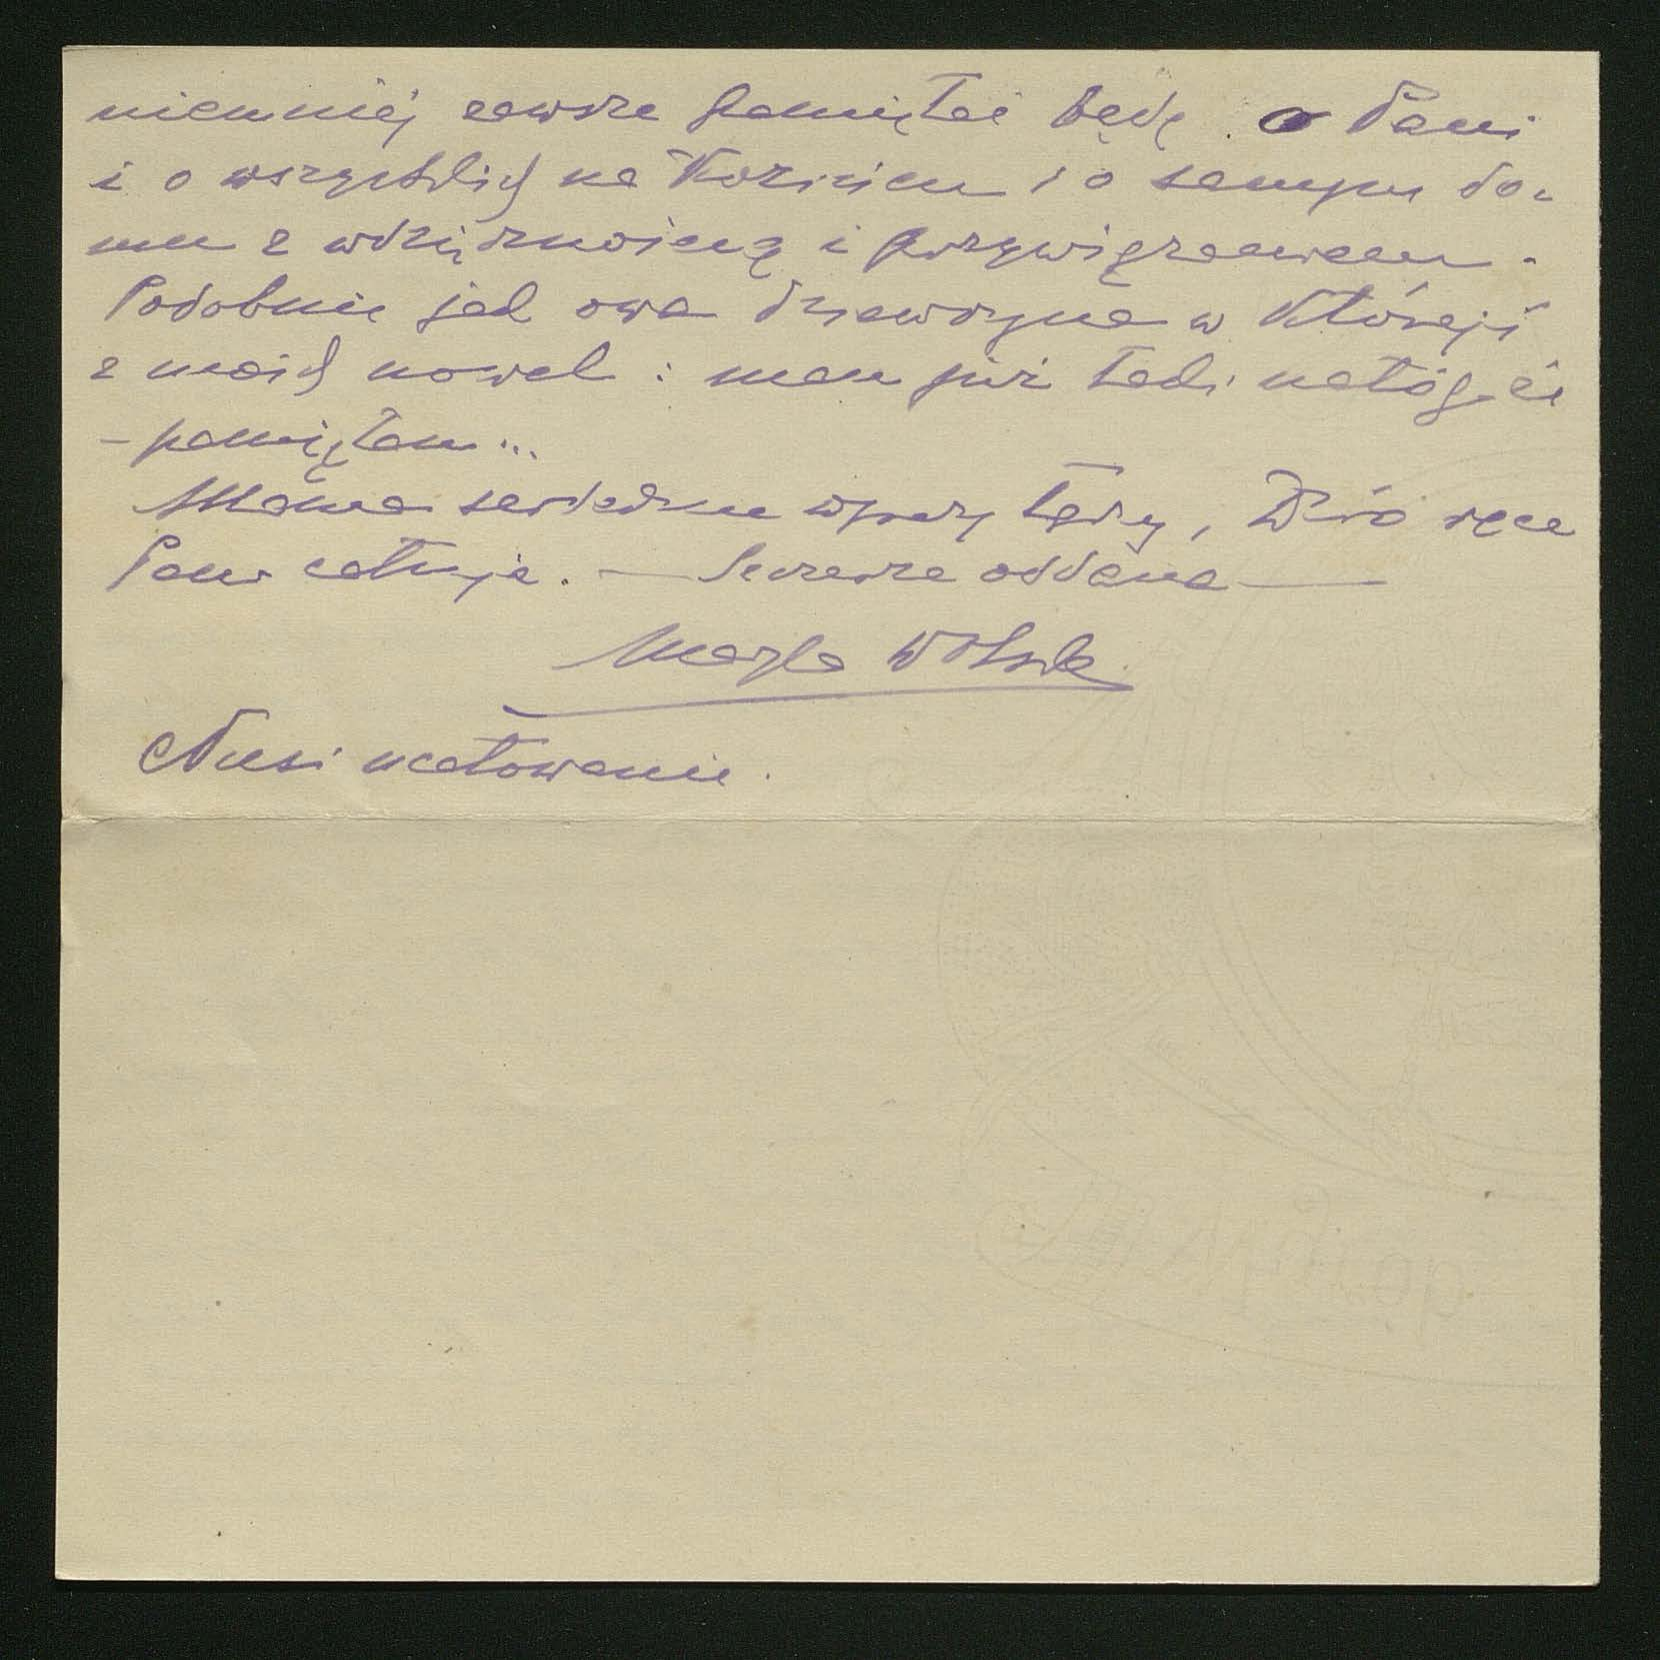 niemniej zawsze pamiętać będę o Pani
i o wszystkich na Kozińcu i o samym do-
mu z wdzięcznością i przywiązaniem.
Podobnie jak owa dziewczyna w którejś
z moich nowel: mam już taki nałóg, że
– pamiętam...
Mama serdecznie wpisy łączy, Dziró ręce
Pani całuje. — Szczerze oddana —
Maryla Wolska
Nusi ucałowanie.